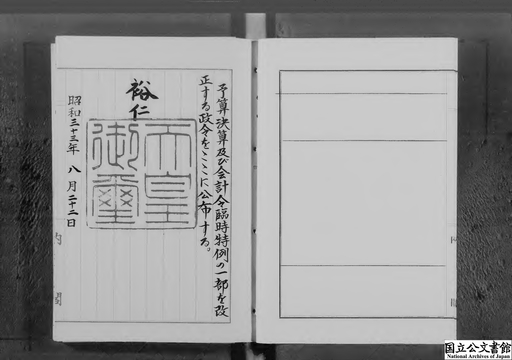 予算決算及び会計令臨時特例の一部を改
正する政令をここに公布する。
裕仁
天皇
御璽
昭和三十三年八月二十二日
内閣
国立公文書館
National Archives of Japan